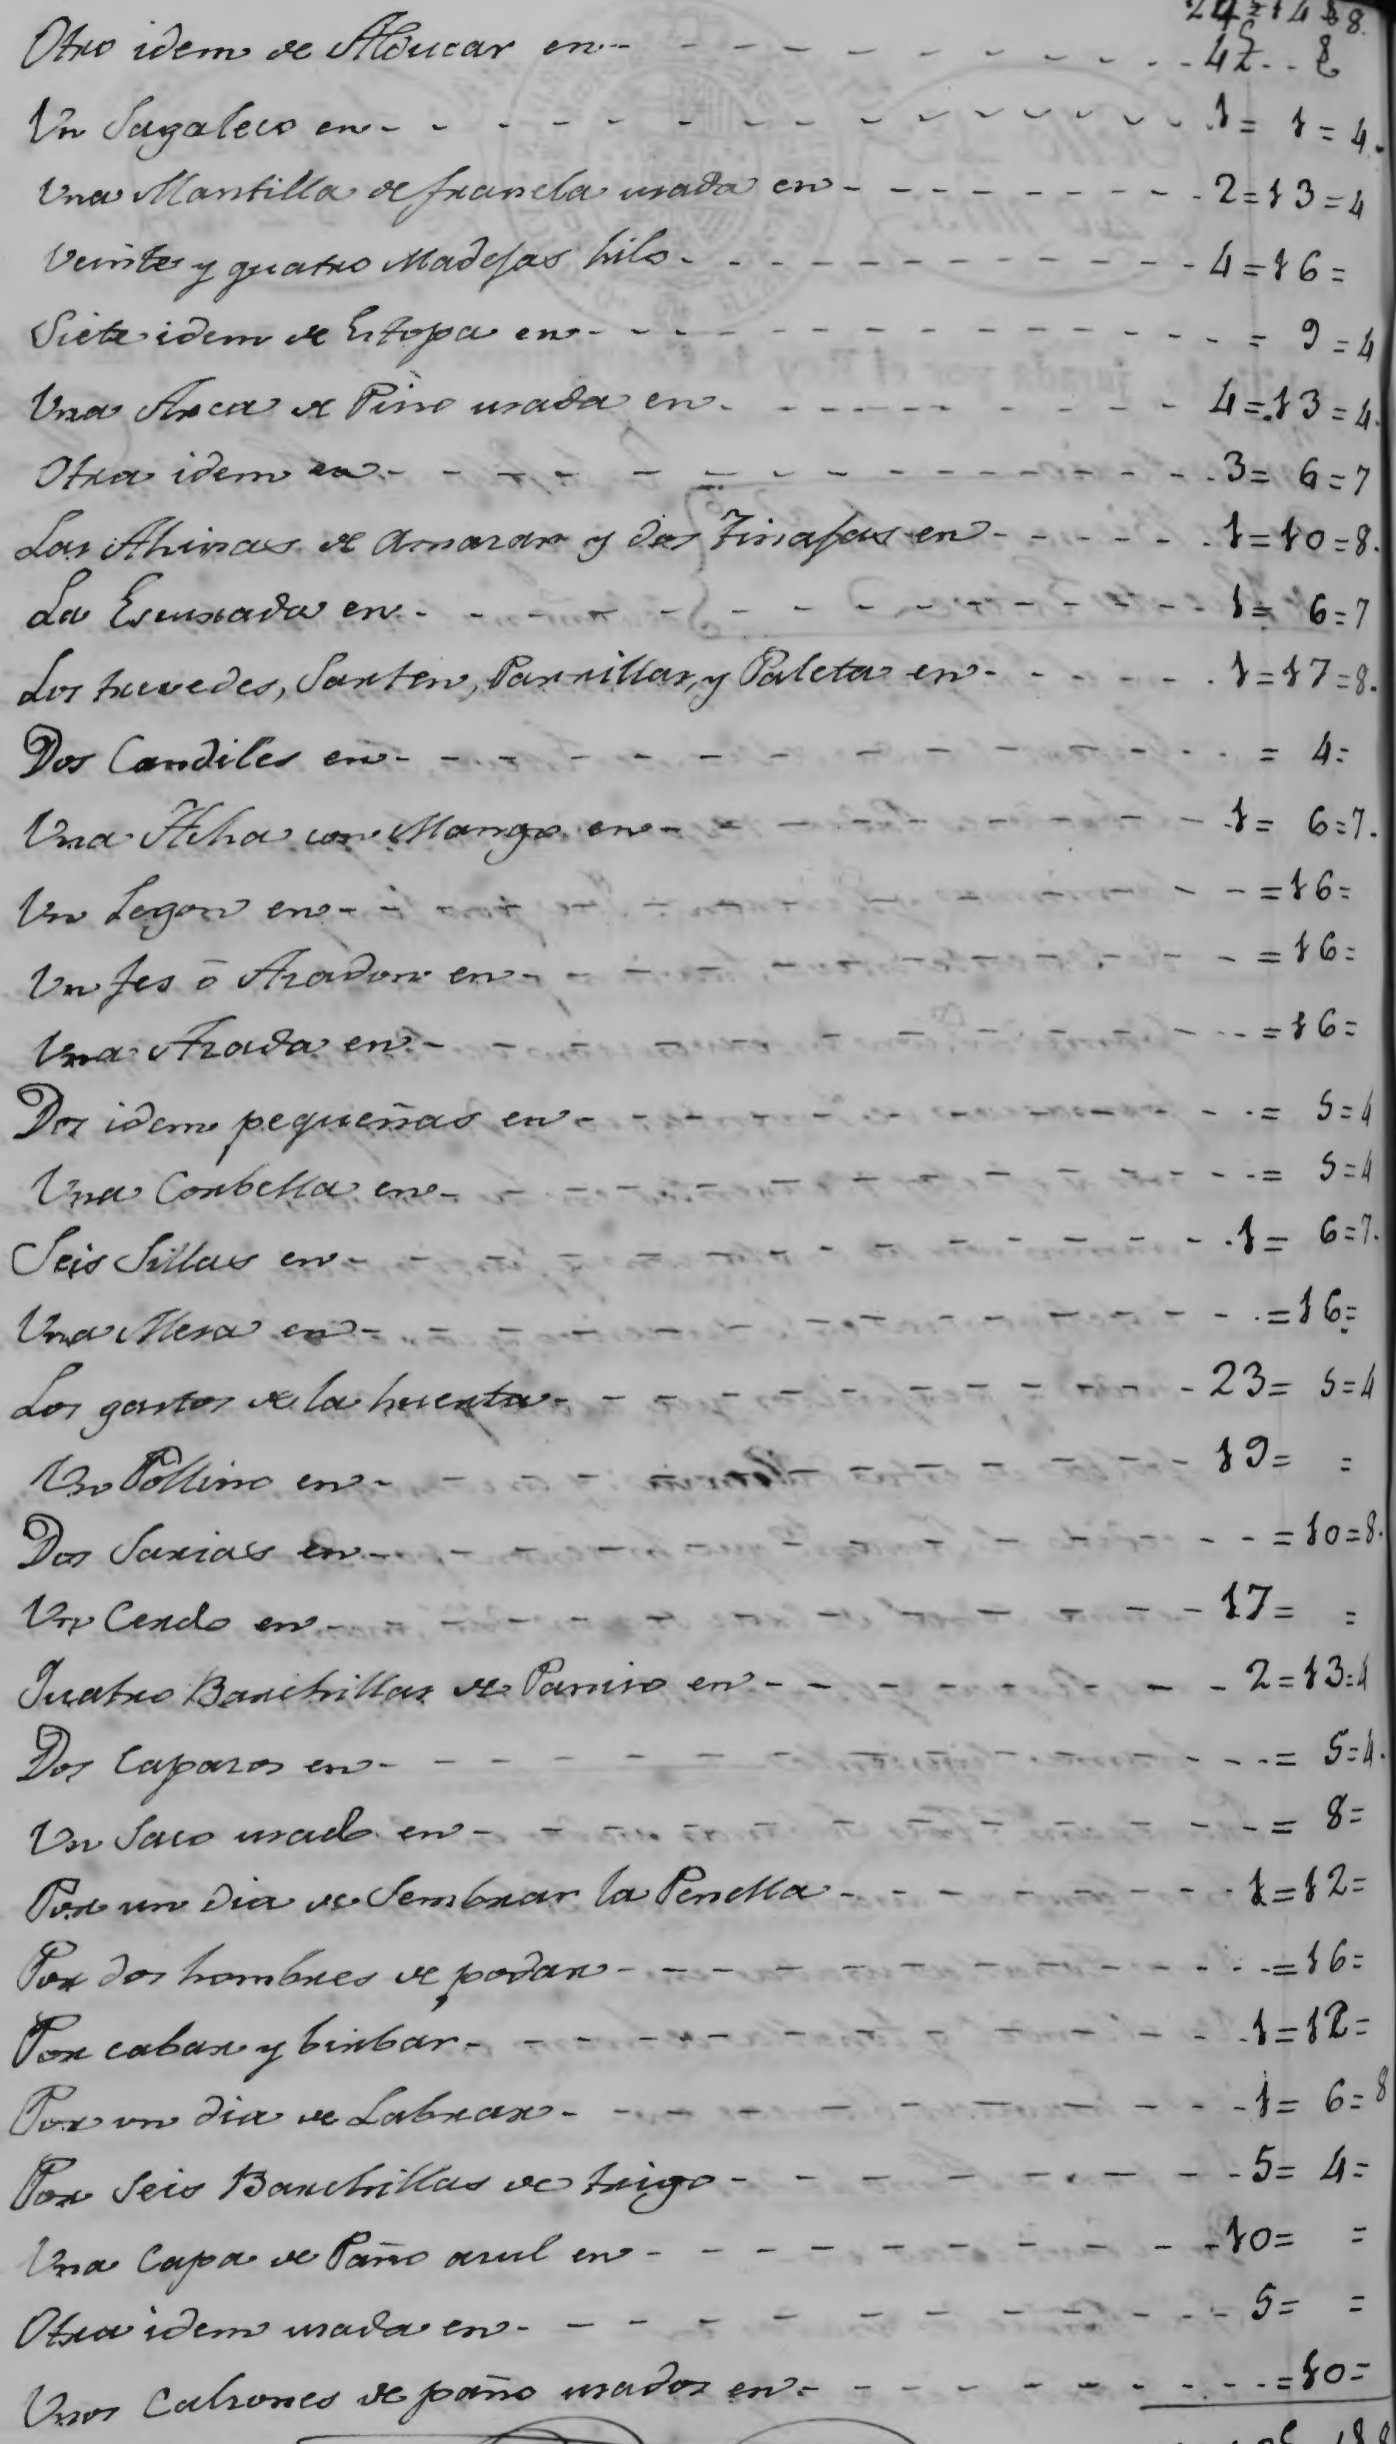 Otro idem de Alducar en - - - 
Un Sagaleco en - - - 1 = 1 = 4.
Una Mantilla de franela usada en - - - 2 = 13 = 4
Veinte y quatro Madejas hilo - - - 4 = 16 =
Siete idem de Estopa en - - - = 9 = 4
Una Arca de Pino usada en - - - 4 = 13 = 4.
Otra idem en - - - 3 = 6 = 7
Las Ahinas de Amarar y dos Tinajas en - - - 1 = 10 = 8.
La Escurada en - - - 1 = 6 = 7
Los trevedes, Sarten, Parrillas, y Paleta en - - - 1 = 17 = 8.
Dos Candiles en - - - = 4 =
Una Acha con Mango en - - - 1 = 6 = 7.
Un Legon en - - - = 16 =
Un fes ó Azadon en - - - = 16 =
Una Azada en - - - = 16 =
Dos idem pequeñas en - - - = 5 = 4
Una Corbella en - - - = 5 = 4
Seis Sillas en - - - 1 = 6 = 7.
Una Mesa en - - - = 16 =
Los gastos de la huerta - - - 23 = 5 = 4
Un Pollino en - - - 19 = =
Dos Sarias en - - - = 10 = 8.
Un Cerdo en - - - 17 = =
Quatro Barchillas de Paniso en - - - 2 = 13 = 4
Dos Capazos en - - - = 5 = 4.
Un Saco usado en - - - = 8 =
Por un dia de Sembrar la Penella - - - 1 = 12 =
Por dos hombres de podar - - - = 16 =
Por cabar y birbar - - - 1 = 12 =
Por un dia de Labrar - - - 1 = 6 = 8
Por Seis Barchillas de trigo - - - 5 = 4 =
Una Capa de Paño asul en - - - 10 = =
Otra idem usada en - - - 5 = =
Unos Calsones de paño usados en - - - = 10 =